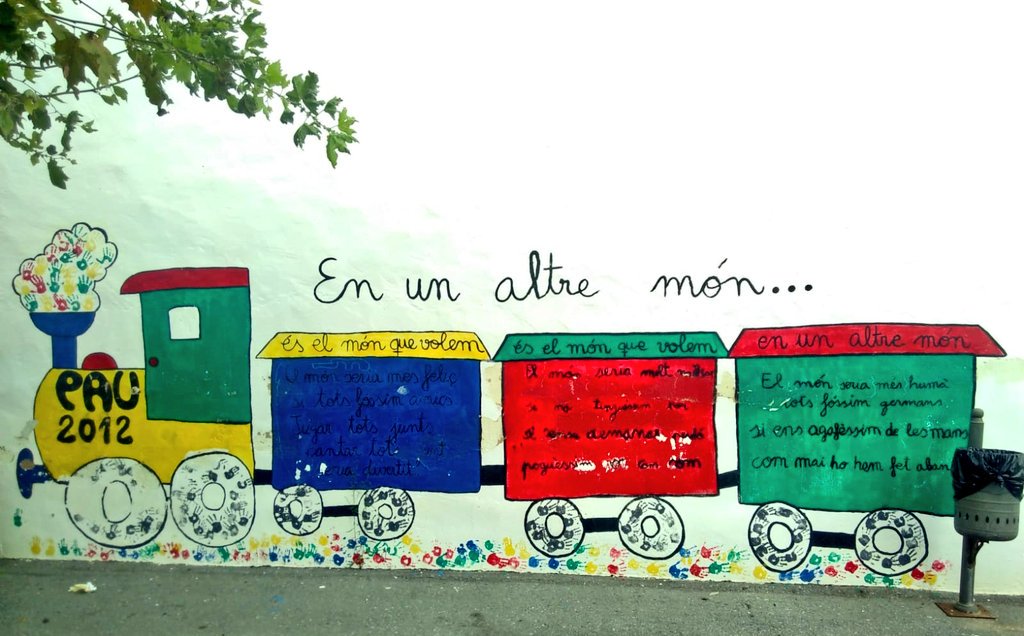 En un altre món...
PAU
2012
és el món que volem
El món seria més feliç
si tots fóssim amics
Jugar tots junts
cantar tots
seria divertit
és el món que volem
El món seria molt
si no tinguéssim por
si sense demanar perdó
poguéssim
en un altre món
El món seria més humà
tots fóssim germans
si ens agaféssim de les mans
com mai ho hem fet abans